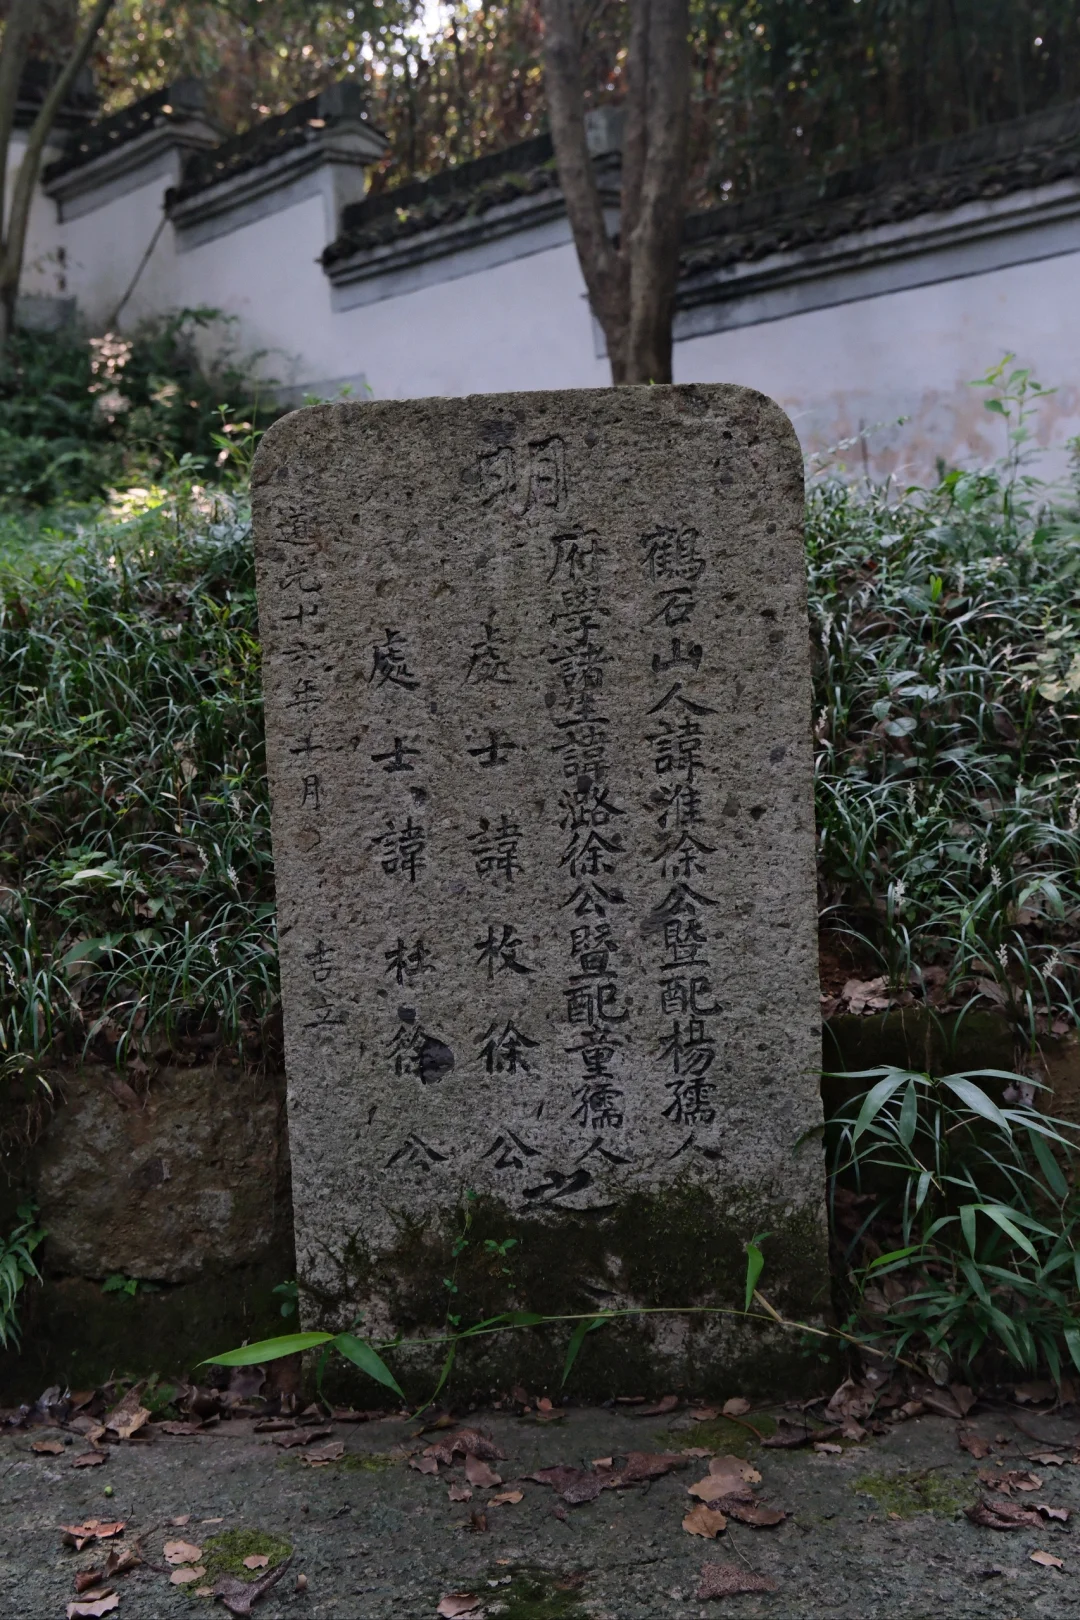 明
鶴石山人諱淮徐公暨配楊孺人
府學諸生諱潞徐公暨配童孺人
處士諱枚徐公
處士諱杜徐公
之
道光廿六年十月吉立